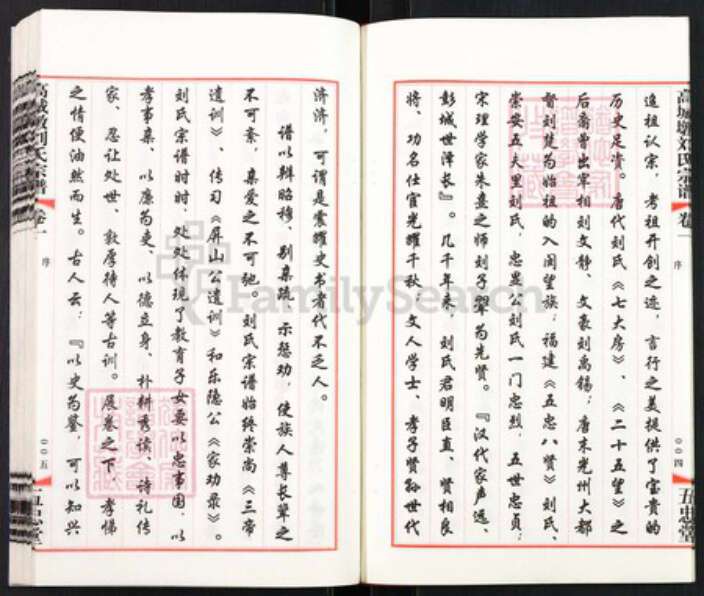 高城墩刘氏宗谱 卷一
序
〇〇四
五忠堂
追祖认宗，考祖开创之迹，言行之美提供了宝贵的
历史足资。唐代刘氏《七大房》、《二十五望》之
后裔曾出宰相刘文静、文豪刘禹锡；唐末光州大都
督刘楚为始祖的入闽望族；福建《五忠八贤》刘氏、
崇安五夫里刘氏，忠显公刘氏一门忠烈，五世忠贞；
宋理学家朱熹之师刘子翚为先贤。『汉代家声远、
彭城世泽长』。几千年来，刘氏君明臣直、贤相良
将、功名仕宦光耀千秋，文人学士、孝子贤孙世代
济济，可谓是震耀史书者代不乏人。
谱以辩昭穆、别亲疏，示惩劝，使族人尊长辈之
不可紊，亲爱之不可弛。刘氏宗谱始终崇尚《三帝
遗训》、传习《屏山公遗训》和乐隐公《家劝录》。
刘氏宗谱时时、处处体现了教育子女要以忠事国，以
孝事亲、以廉为吏、以德立身、朴耕秀读、诗礼传
家、忍让处世、敦厚待人等古训。展卷之下，孝悌
之情便油然而生。古人云：『以史为鉴，可以知兴
高城墩刘氏宗谱 卷一
序
〇〇五
五忠堂
FamilySearch